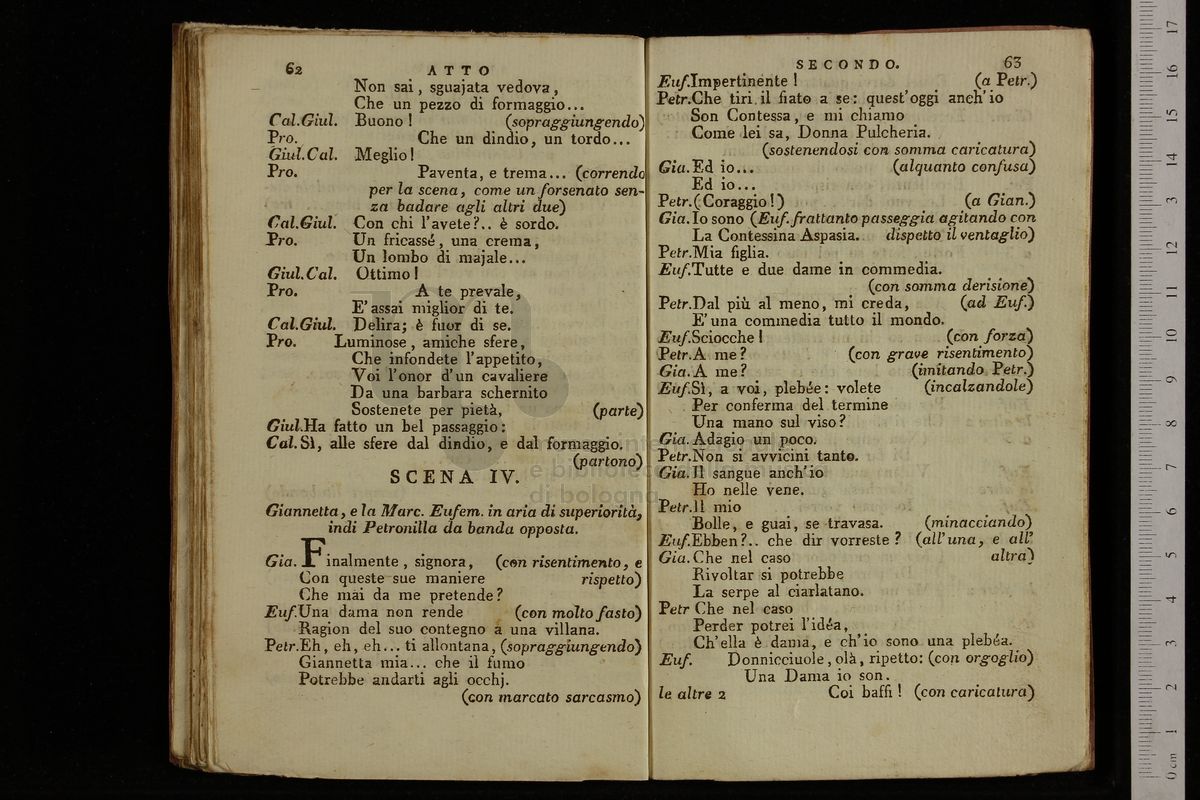 62
ATTO
Non sai, sguajata vedova,
Che un pezzo di formaggio...
Cal.Giul. Buono! (sopraggiungendo)
Pro. Che un dindio, un tordo...
Giul.Cal. Meglio!
Pro. Paventa, e trema... (correndo
per la scena, come un forsenato sen-
za badare agli altri due)
Cal.Giul. Con chi l'avete?.. è sordo.
Pro. Un fricassé, una crema,
Un lombo di majale...
Giul.Cal. Ottimo!
Pro. A te prevale,
E' assai miglior di te.
Cal.Giul. Delira; è fuor di se.
Pro. Luminose, amiche sfere,
Che infondete l'appetito,
Voi l'onor d'un cavaliere
Da una barbara schernito
Sostenete per pietà, (parte)
Giul.Ha fatto un bel passaggio:
Cal. Sì, alle sfere dal dindio, e dal formaggio.
(partono)
SCENA IV.
Giannetta, e la Marc. Eufem. in aria di superiorità,
indi Petronilla da banda opposta.
Gia. Finalmente, signora, (con risentimento, e
Con queste sue maniere rispetto)
Che mai da me pretende?
Euf.Una dama non rende (con molto fasto)
Ragion del suo contegno a una villana.
Petr.Eh, eh, eh... ti allontana, (sopraggiungendo)
Giannetta mia... che il fumo
Potrebbe andarti agli occhj.
(con marcato sarcasmo)
SECONDO.
63
Euf.Impertinente! (a Petr.)
Petr.Che tiri il fiato a se: quest'oggi anch'io
Son Contessa, e mi chiamo
Come lei sa, Donna Pulcheria.
(sostenendosi con somma caricatura)
Gia. Ed io... (alquanto confusa)
Ed io...
Petr.(Coraggio!) (a Gian.)
Gia. Io sono (Euf. frattanto passeggia agitando con
La Contessina Aspasia. dispetto il ventaglio)
Petr.Mia figlia.
Euf.Tutte e due dame in commedia.
(con somma derisione)
Petr.Dal più al meno, mi creda, (ad Euf.)
E' una commedia tutto il mondo.
Euf.Sciocche! (con forza)
Petr.A me? (con grave risentimento)
Gia. A me? (imitando Petr.)
Euf.Sì, a voi, plebée: volete (incalzandole)
Per conferma del termine
Una mano sul viso?
Gia. Adagio un poco.
Petr.Non si avvicini tanto.
Gia. Il sangue anch'io
Ho nelle vene.
Petr.Il mio
Bolle, e guai, se travasa. (minacciando)
Euf.Ebben?.. che dir vorreste? (all'una, e all'
Gia. Che nel caso altra)
Rivoltar si potrebbe
La serpe al ciarlatano.
Petr Che nel caso
Perder potrei l'idéa,
Ch'ella è dama, e ch'io sono una plebéa.
Euf. Donnicciuole, olà, ripetto: (con orgoglio)
Una Dama io son.
le altre 2 Coi baffi! (con caricatura)